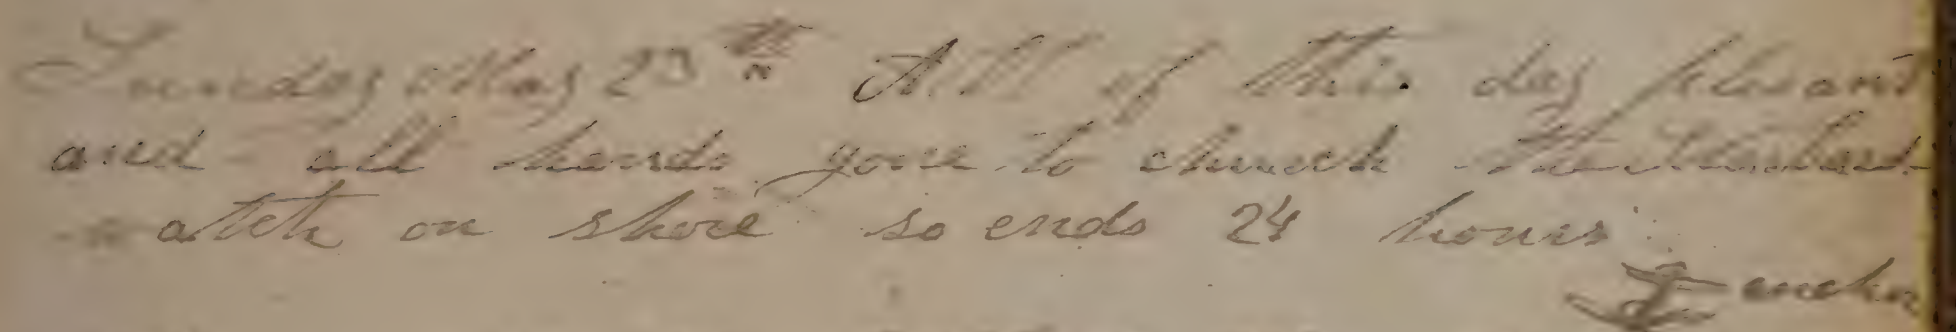 Sunday May 23th All of this day plesant
and all hands gone to church the Starbord
watch on shore so ends 24 hours